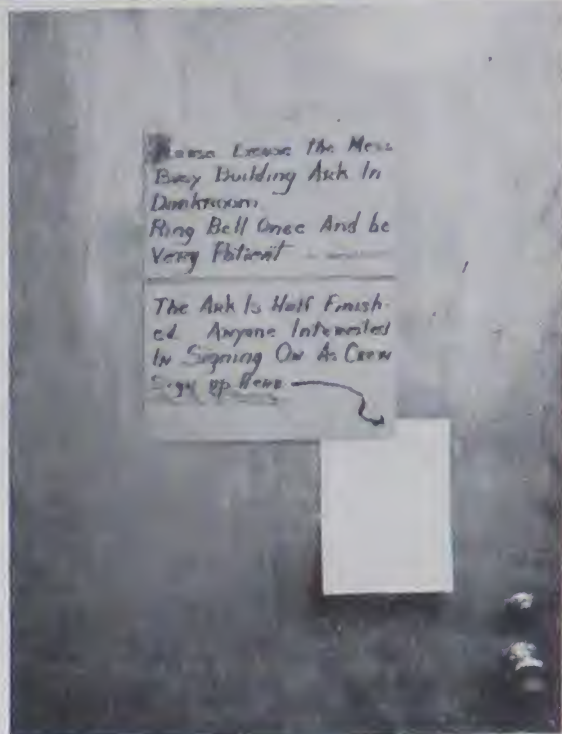 Please Excuse the Mess
Busy Building Ark In
Darkroom.
Ring Bell Once And be
Very Patient
The Ark Is Half Finish-
ed. Anyone Interested
In Signing On As Crew
Sign up Here